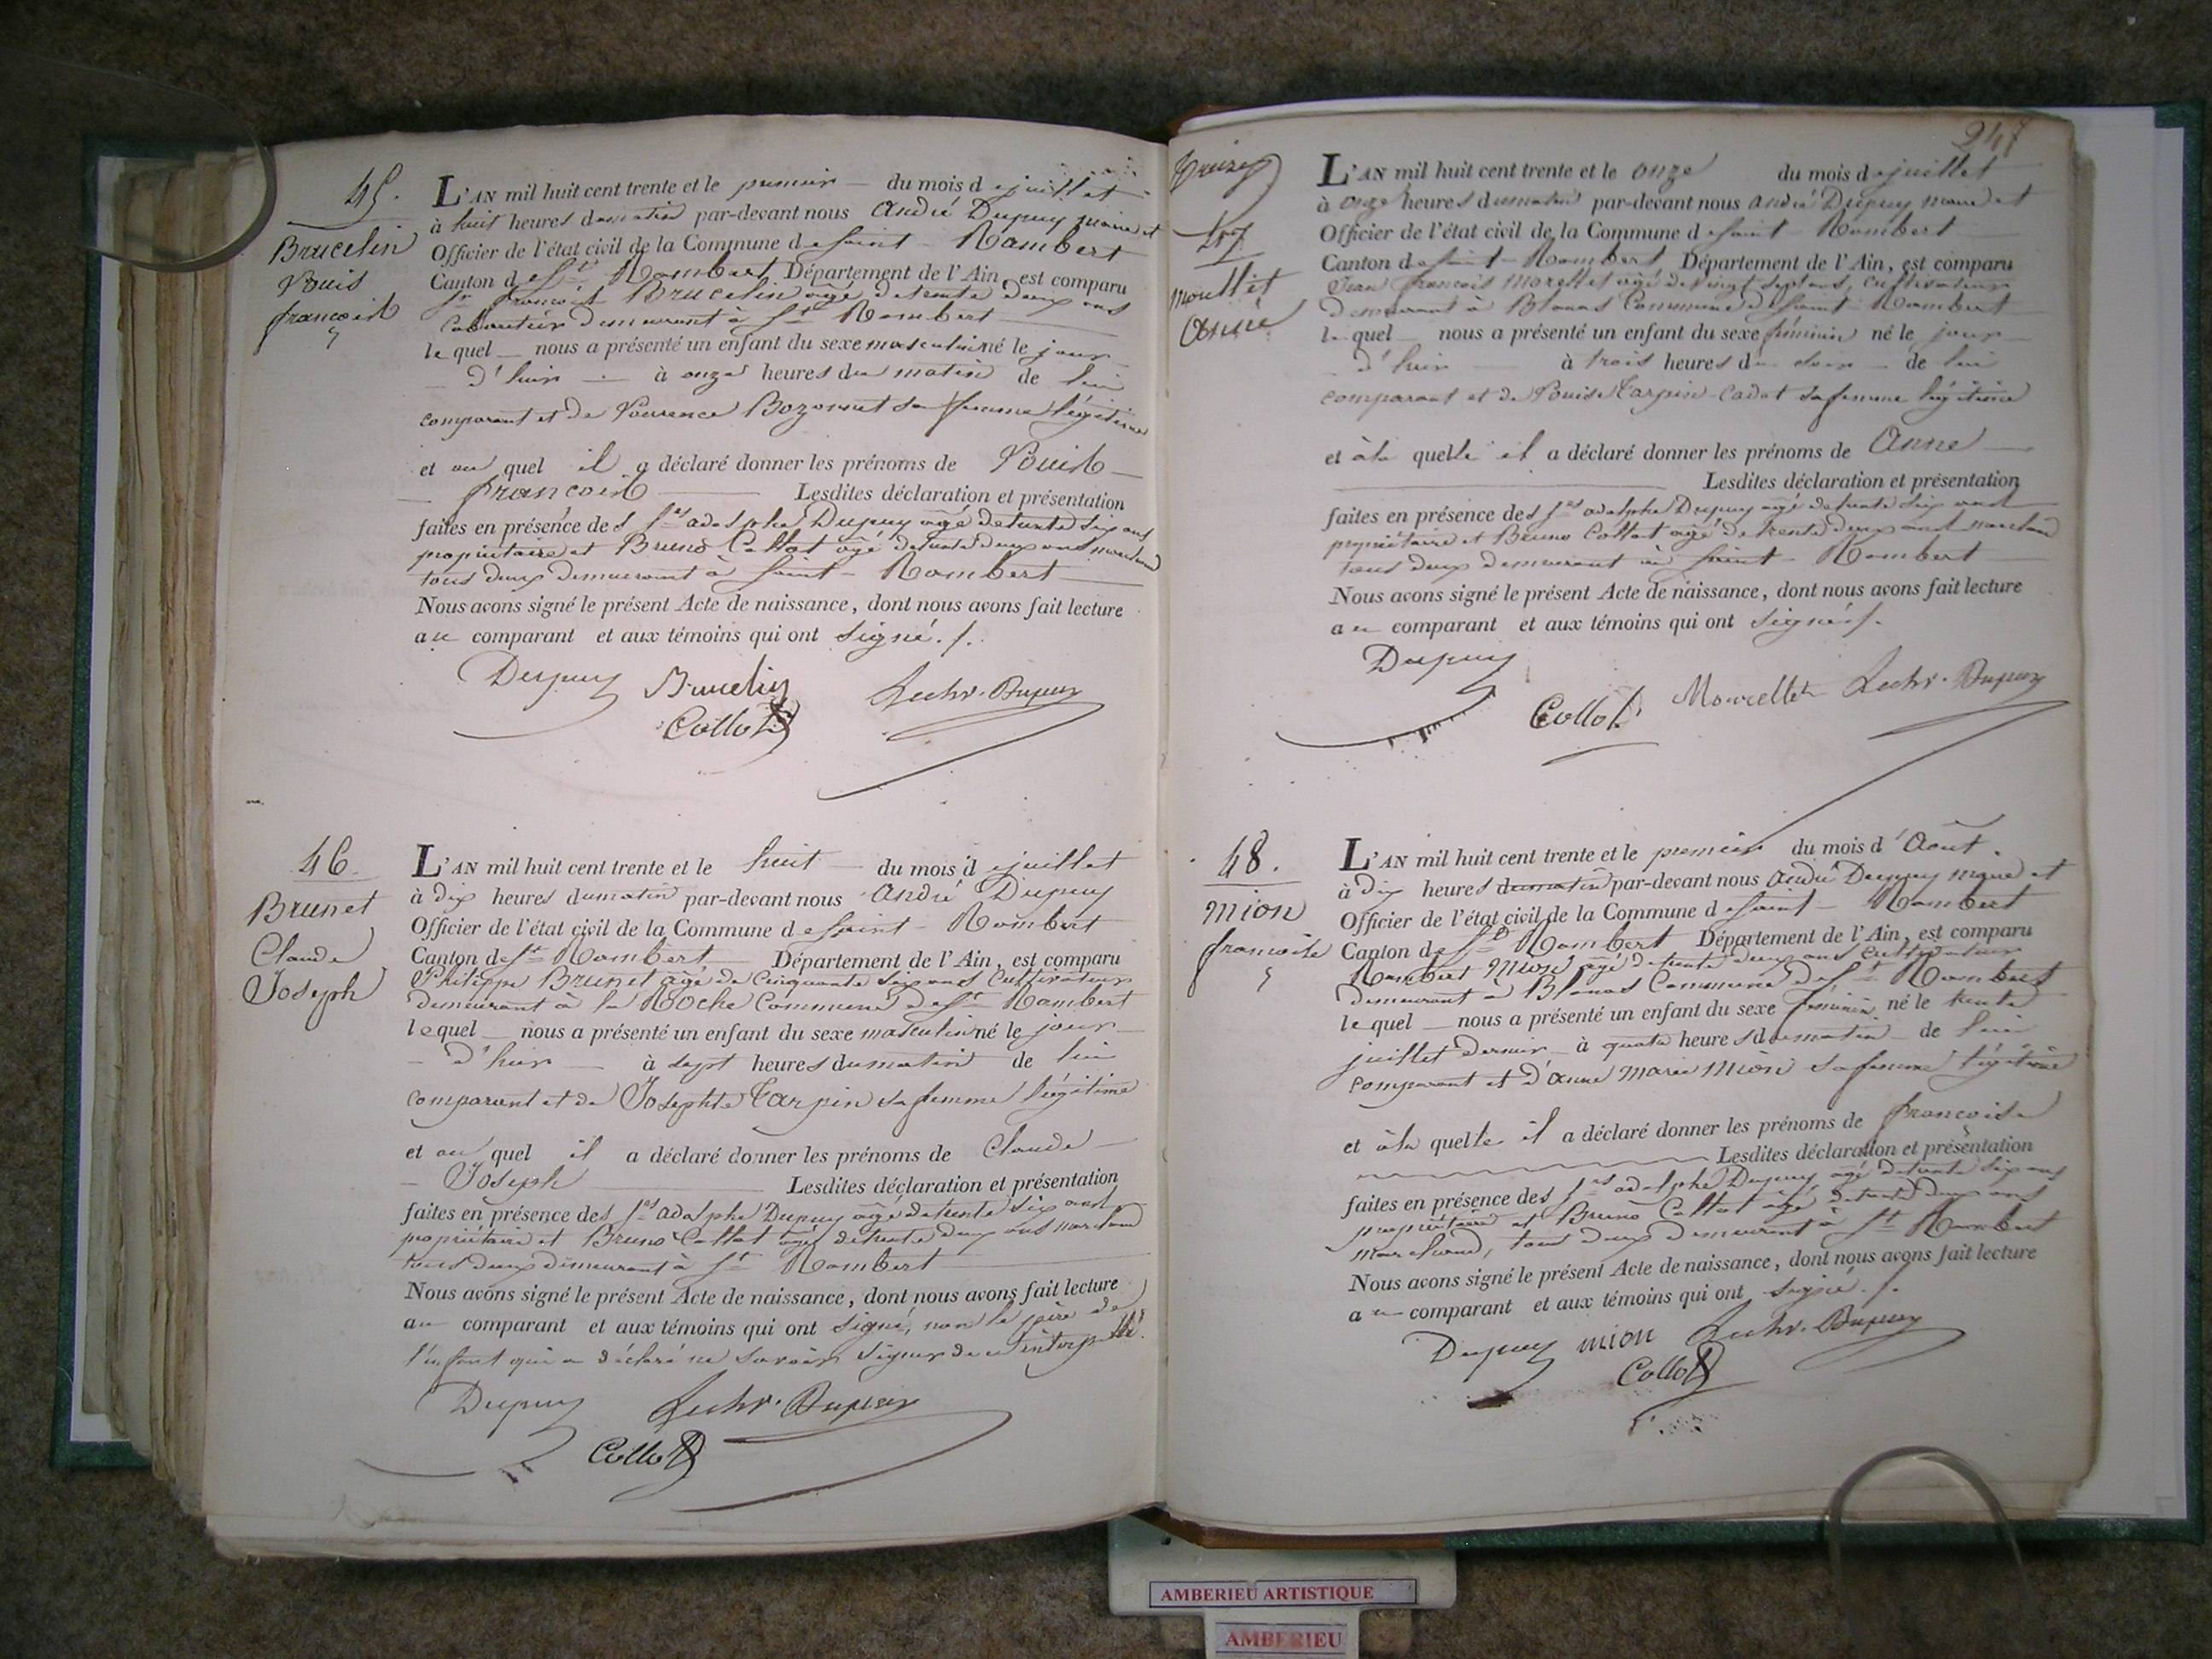 45.
Brucelin
Louis
françois
L'AN mil huit cent trente et le premier du mois de juillet
à huit heures du matin par-devant nous André Dupuy maire et
Officier de l'état civil de la Commune de saint-Rambert
Canton de St Rambert Département de l'Ain, est comparu
Sr françois Brucelin agé de trente deux ans
cabaretier demeurant à St Rambert
lequel nous a présenté un enfant du sexe masculin né le jour
d'hier à onze heures du matin de lui
comparant et de Laurence Bozonnet sa femme légitime
et au quel il a déclaré donner les prénoms de Louis
françois Lesdites déclaration et présentation
faites en présence des Srs adolphe Dupuy agé de trente six ans
propriétaire et Bruno Collot agé de trente deux ans marchand
tous deux demeurant à saint-Rambert
Nous avons signé le présent Acte de naissance, dont nous avons fait lecture
au comparant et aux témoins qui ont signé./.
Dupuy Brucelin
Collot
46.
Brunet
Claude
Joseph
L'AN mil huit cent trente et le huit du mois de juillet
à dix heures du matin par-devant nous André Dupuy
Officier de l'état civil de la Commune de saint-Rambert
Canton de St Rambert Département de l'Ain, est comparu
Philippe Brunet agé de cinquante six ans cultivateur
demeurant à la Roche Commune de St Rambert
lequel nous a présenté un enfant du sexe masculin né le jour
d'hier à sept heures du matin de lui
comparant et de Josephte Tarpin sa femme légitime
et au quel il a déclaré donner les prénoms de Claude
Joseph Lesdites déclaration et présentation
faites en présence des Srs adolphe Dupuy agé de trente six ans
propriétaire et Bruno Collot agé de trente deux ans marchand
tous deux demeurant à St Rambert
Nous avons signé le présent Acte de naissance, dont nous avons fait lecture
au comparant et aux témoins qui ont signé, non le père de
l'enfant qui a déclaré ne savoir signer de ce interpellé.
Dupuy
Collot
247
47
Anne
L'AN mil huit cent trente et le onze du mois de juillet
à onze heures du matin par-devant nous andré Dupuy maire et
Officier de l'état civil de la Commune de saint-Rambert
Canton de saint-Rambert Département de l'Ain, est comparu
Jean françois agé de vingt sept ans, cultivateur
demeurant à Blanas Commune de saint-Rambert
lequel nous a présenté un enfant du sexe féminin né le jour
d'hier à trois heures du soir de lui
comparant et de Louise Tarpin-Cadot sa femme légitime
et à la quelle il a déclaré donner les prénoms de Anne
Lesdites déclaration et présentation
faites en présence des Srs adolphe Dupuy agé de trente six ans
propriétaire et Bruno Collot agé de trente deux ans marchand
tous deux demeurant à saint-Rambert
Nous avons signé le présent Acte de naissance, dont nous avons fait lecture
au comparant et aux témoins qui ont signé./.
Dupuy
Collot
48.
mion
françoise
L'AN mil huit cent trente et le premier du mois d'Août.
à dix heures du matin par-devant nous André Dupuy maire et
Officier de l'état civil de la Commune de saint-Rambert
Canton de St Rambert Département de l'Ain, est comparu
Rambert Mion agé de trente deux ans cultivateur
demeurant à Blanas Commune de St Rambert
lequel nous a présenté un enfant du sexe féminin né le trente
juillet dernier à quatre heures du matin de lui
comparant et d'anne marie Mion sa femme légitime
et à la quelle il a déclaré donner les prénoms de françoise
Lesdites déclaration et présentation
faites en présence des Srs adolphe Dupuy agé de trente six ans
propriétaire et Bruno Collot agé de trente deux ans
marchand, tous deux demeurant à St Rambert
Nous avons signé le présent Acte de naissance, dont nous avons fait lecture
au comparant et aux témoins qui ont signé./.
Dupuy mion
Collot
AMBERIEU ARTISTIQUE
AMBERIEU